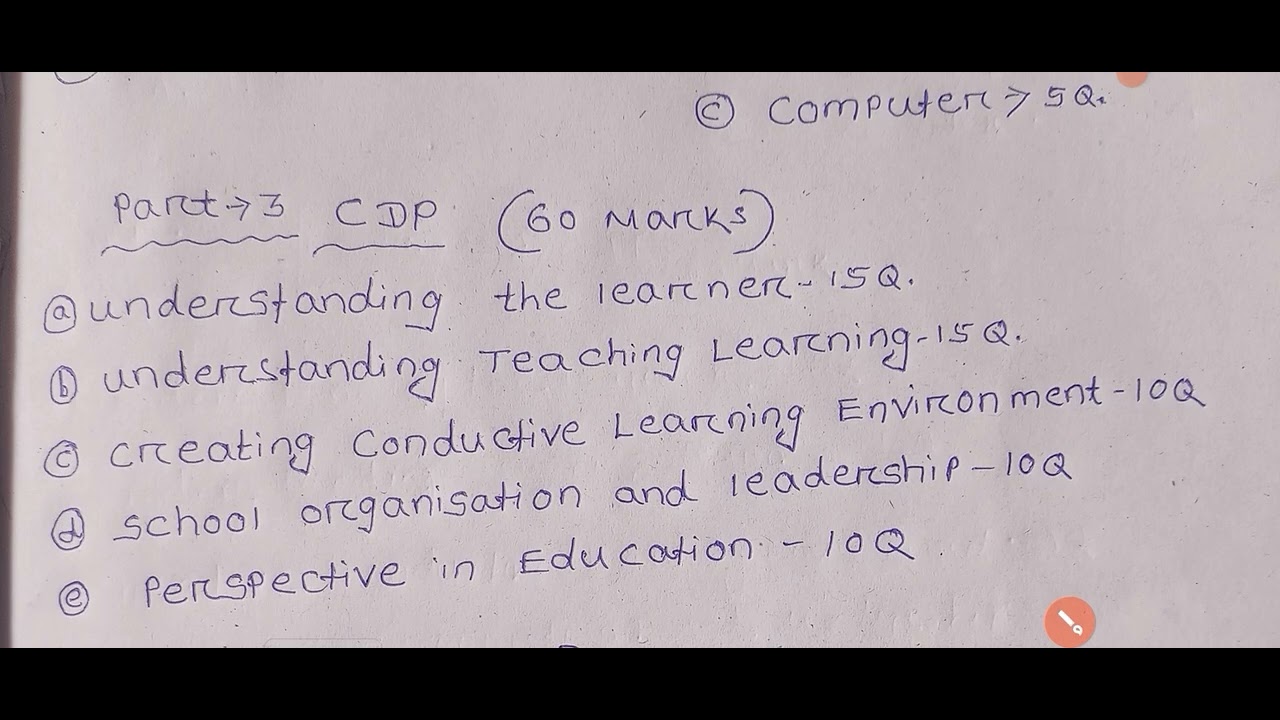 ⓒ Computer → 5Q.
Part → 3 CDP (60 Marks)
ⓐ understanding the learner - 15Q.
ⓑ understanding Teaching Learning - 15Q.
ⓒ creating Conductive Learning Environment - 10Q
ⓓ school organisation and leadership - 10Q
ⓔ Perspective in Education - 10Q